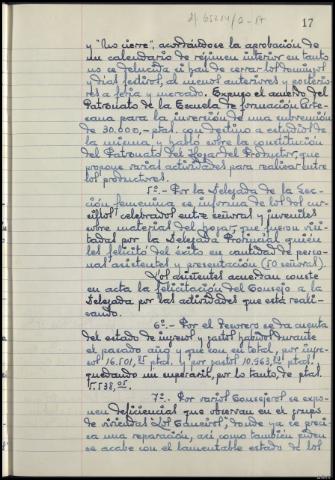 17
y "No cierre", acordándose la aprobación de
un calendario de régimen interior en tanto
no se deducida si han de cerrar los domingos
y días festivos, al menos anteriores y posterio-
res a feria y mercado. Expuso el acuerdo del
Patronato de la Escuela de formación Arte-
sana para la inversión de una subvención
de 30.000,- ptas. con destino a estudios de
la misma y habló sobre la constitución
del Patronato del Hogar del Productor, que
propone varias actividades para realizar entre
los productores.
5º.- Por la Delegada de la Sec-
ción femenina se informa de los dos cur-
sillos celebrados entre señoras y juveniles
sobre materias del hogar, que fueron visi-
tadas por la Delegada Provincial quien
les felicitó del éxito en cantidad de perso-
nas asistentes y presentación (50 señoras).
Los asistentes acuerdan conste
en acta la felicitación del Consejo a la
Delegada por las actividades que está reali-
zando.
6º.- Por el Tesorero se da cuenta
del estado de ingresos y gastos habidos durante
el pasado año y que son en total, por ingre-
sos 16.501, ptas. y por gastos 10.963, ptas.
quedando un superavit, por lo tanto, de ptas.
5.538,
7º.- Por varios Consejeros se expo-
nen deficiencias que observan en el grupo
de viviendas "Los Caneiros", donde ya se preci-
sa una reparación, así como también piden
se acabe con el lamentable estado de los